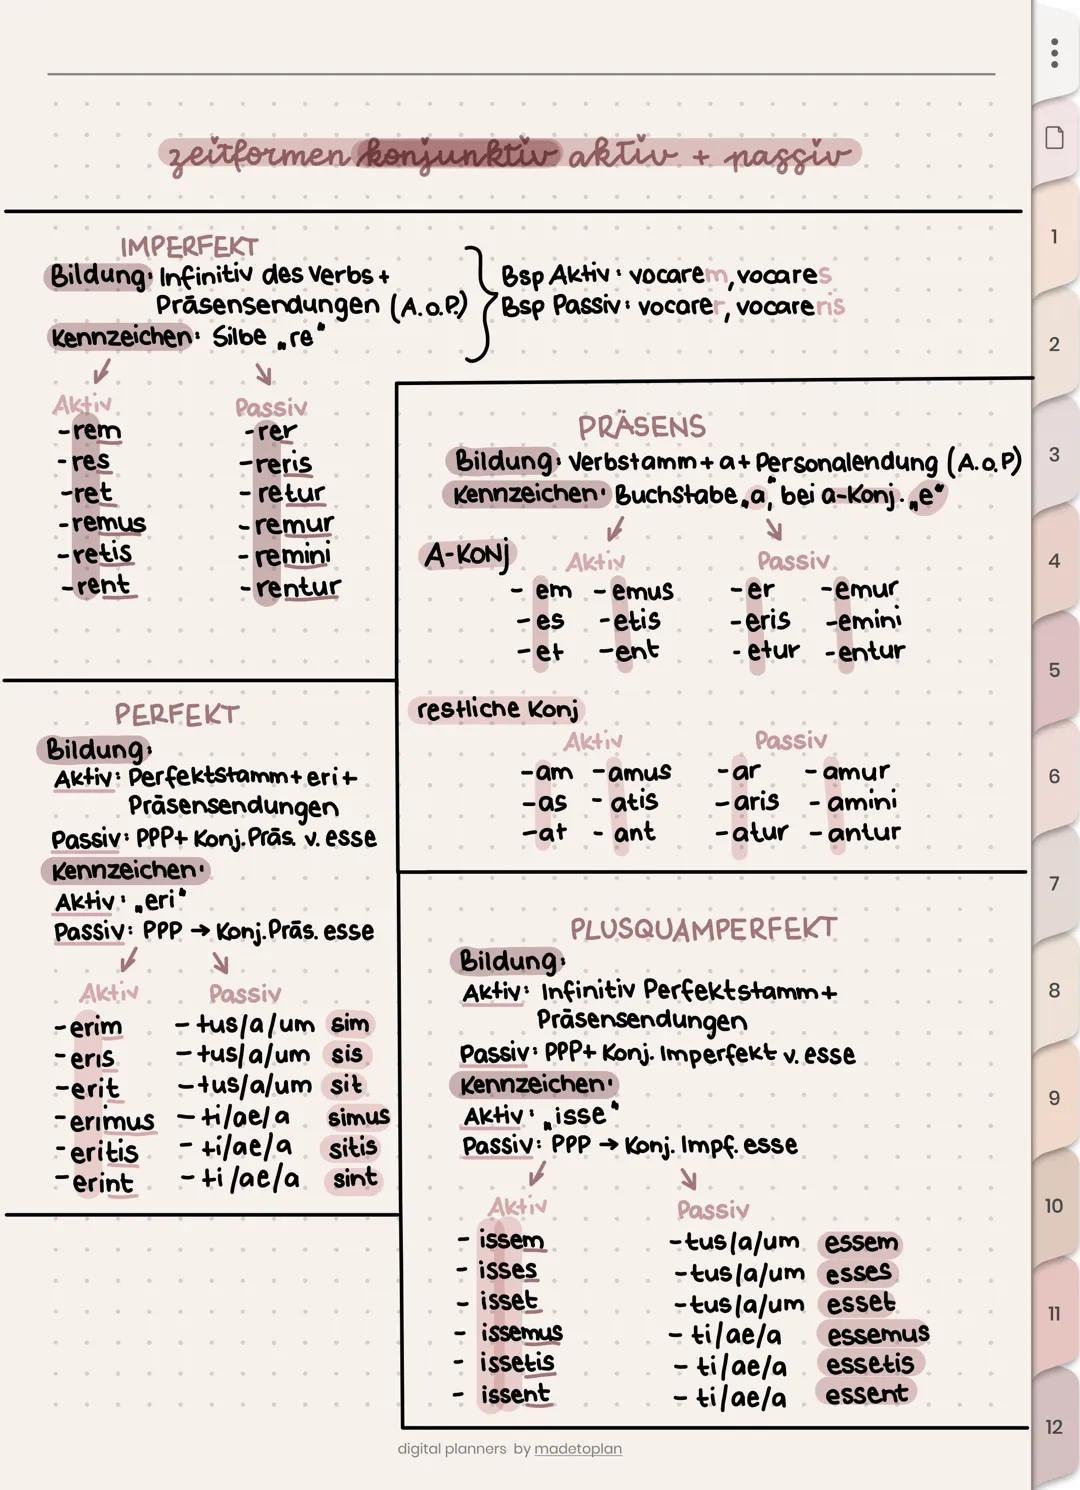 zeitformen konjunktiv aktiv + passiv
IMPERFEKT
Bildung: Infinitiv des Verbs +
Präsensendungen (A.o.P.)
Kennzeichen: Silbe „re“
Bsp Aktiv: vocarem, vocares
Bsp Passiv: vocarer, vocareris
Aktiv Passiv
-rem -rer
-res -reris
-ret -retur
-remus -remur
-retis -remini
-rent -rentur
PRÄSENS
Bildung: Verbstamm + a + Personalendung (A.o.P)
Kennzeichen: Buchstabe „a“, bei a-Konj. „e“
A-KONJ
Aktiv Passiv
- em - emus - er - emur
- es - etis - eris - emini
- et - ent - etur - entur
restliche Konj
Aktiv Passiv
- am - amus - ar - amur
- as - atis - aris - amini
- at - ant - atur - antur
PERFEKT
Bildung:
Aktiv: Perfektstamm + eri +
Präsensendungen
Passiv: PPP + Konj. Präs. v. esse
Kennzeichen:
Aktiv: „eri“
Passiv: PPP → Konj. Präs. esse
Aktiv Passiv
- erim - tus/a/um sim
- eris - tus/a/um sis
- erit - tus/a/um sit
- erimus - ti/ae/a simus
- eritis - ti/ae/a sitis
- erint - ti/ae/a sint
PLUSQUAMPERFEKT
Bildung:
Aktiv: Infinitiv Perfektstamm +
Präsensendungen
Passiv: PPP + Konj. Imperfekt v. esse
Kennzeichen:
Aktiv: „isse“
Passiv: PPP → Konj. Impf. esse
Aktiv Passiv
- issem - tus/a/um essem
- isses - tus/a/um esses
- isset - tus/a/um esset
- issemus - ti/ae/a essemus
- issetis - ti/ae/a essetis
- issent - ti/ae/a essent
digital planners by madetoplan
1
2
3
4
5
6
7
8
9
10
11
12